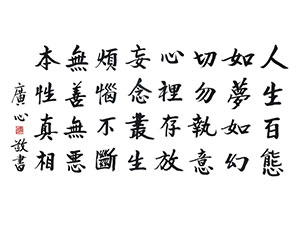 人生百態
如夢如幻
切勿執意
心裡存放
妄念叢生
煩惱不斷
無善無悪
本性真相
廣心敬書